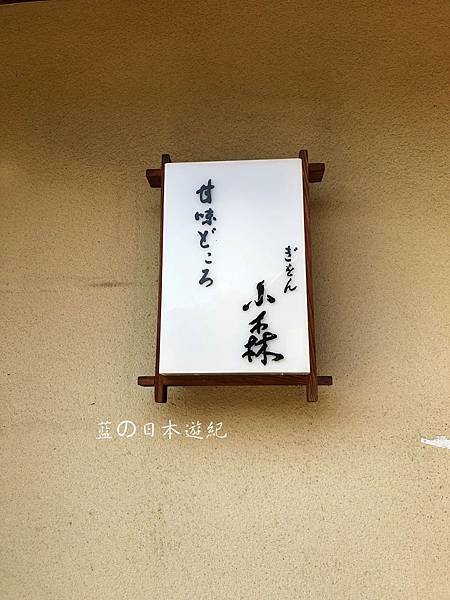 ぎをん
小森
甘味どころ
藍の日本遊紀